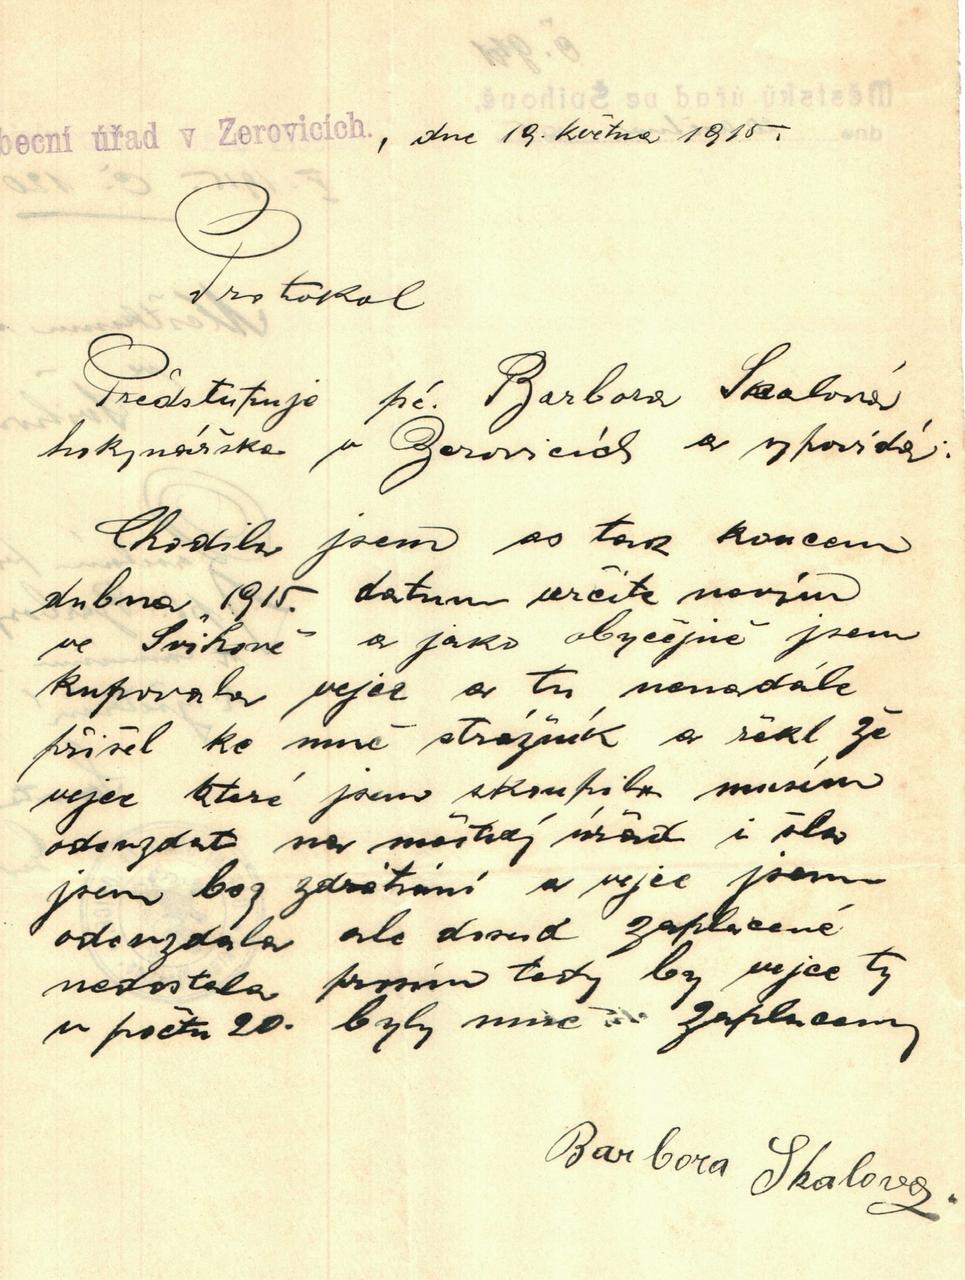 becní úřad v Zerovicích. , dne 19. května 1915.
Protokol
Předstupuje pí. Barbora Skalová
hokynářska v Zerovicích a vypovídá:
Chodila jsem as tak koncem
dubna 1915. datum určite nevím
ve Švihově a jako obyčejně jsem
kupovala vejce a tu nenadále
přišel ke mně strážník a řekl že
vejce které jsem skoupila musím
odevzdat na městský úřad i šla
jsem bez zdráhání a vejce jsem
odevzdala ale dosud zaplacené
nedostala prosím tedy by vejce ty
v počtu 20. byly mně zaplaceny
Barbora Skalova.